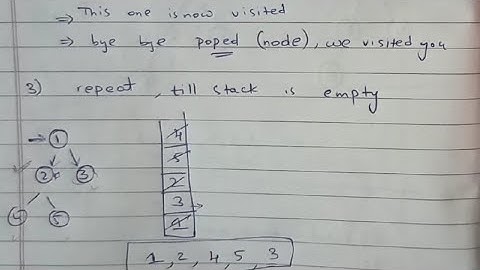 ⇒ This one is now visited
⇒ bye bye poped (node), we visited you
3) repeat, till stack is empty
1
2 3
4 5
4
5
2
3
1
1, 2, 4, 5, 3